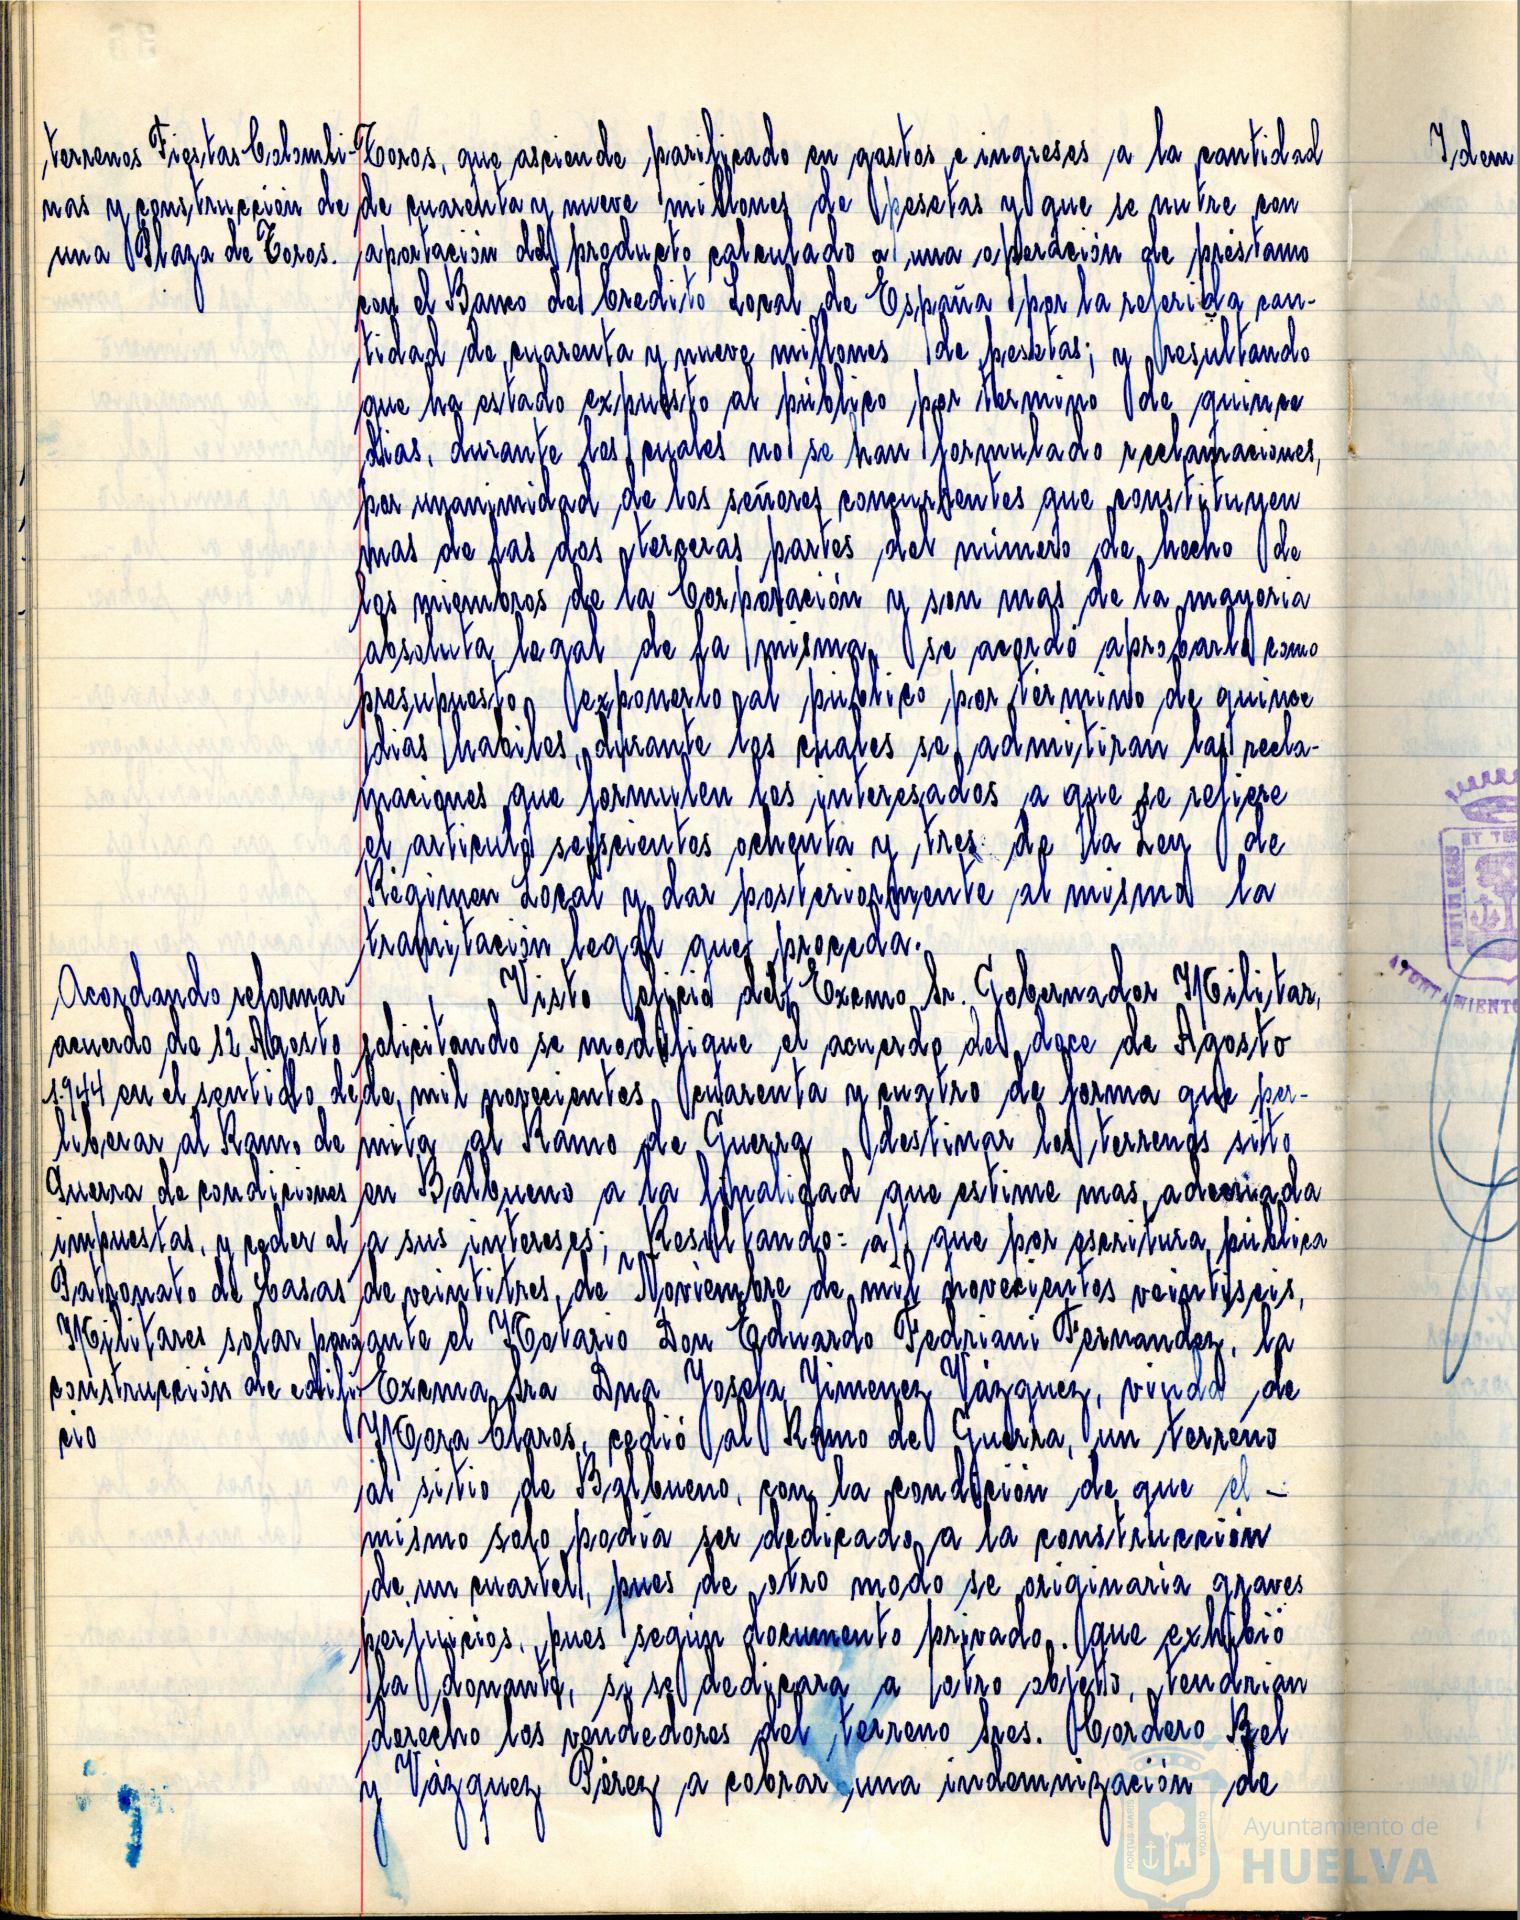 terrenos Fiestas Colombi-
nas y construcción de
una Plaza de Toros.
Toros, que asciende parificado en gastos e ingresos a la cantidad
de cuarenta y nueve millones de pesetas y que se nutre con
aportación del producto calculado a una operación de préstamo
con el Banco de Credito Local de España por la referida can-
tidad de cuarenta y nueve millones de pesetas; y resultando
que ha estado expuesto al público por termino de quince
dias, durante los cuales no se han formulado reclamaciones,
por unanimidad de los señores concurrentes que constituyen
mas de las dos terceras partes del número de hecho de
los miembros de la Corporación y son mas de la mayoria
absoluta legal de la misma, se acordó aprobarlo como
presupuesto, exponerlo al público por término de quince
dias habiles, durante los cuales se admitiran las recla-
maciones que formulen los interesados a que se refiere
el articulo seiscientos ochenta y tres de la Ley de
Régimen Local y dar posteriormente al mismo la
tramitación legal que proceda.
Acordando reformar
acuerdo de 12 Agosto
1.944 en el sentido de
liberar al Ramo de
Guerra de condiciones
impuestas, y ceder al
Patronato de Casas
Militares solar para
construcción de edifi-
cio
Visto oficio del Excmo Sr. Gobernador Militar,
solicitando se modifique el acuerdo del doce de Agosto
de mil novecientos cuarenta y cuatro de forma que per-
mita al Ramo de Guerra destinar los terrenos sitto
en Balbueno a la finalidad que estime mas adecuada
a sus intereses; Resultando: a) que por escritura pública
de veintitres de Noviembre de mil novecientos veintiseis,
ante el Notario Don Eduardo Fedriani Fernandez, la
Excma Sra Dña Josefa Jimenez Vázquez, viuda de
Mora Claros, cedió al Ramo de Guerra, un terreno
al sitio de Balbueno, con la condición de que el -
mismo solo podia ser dedicado a la construcción
de un cuartel, pues de otro modo se originaria graves
perjuicios, pues según documento privado, que exhibió
la donante, si se dedicara a otro objeto, tendrian
derecho los vendedores del terreno Sres. Cordero Bel
y Vázquez Pérez a cobrar una indemnización de
Idem
AYUNTAMIENTO
PORTUS MARIS
CUSTODIA
Ayuntamiento de
HUELVA